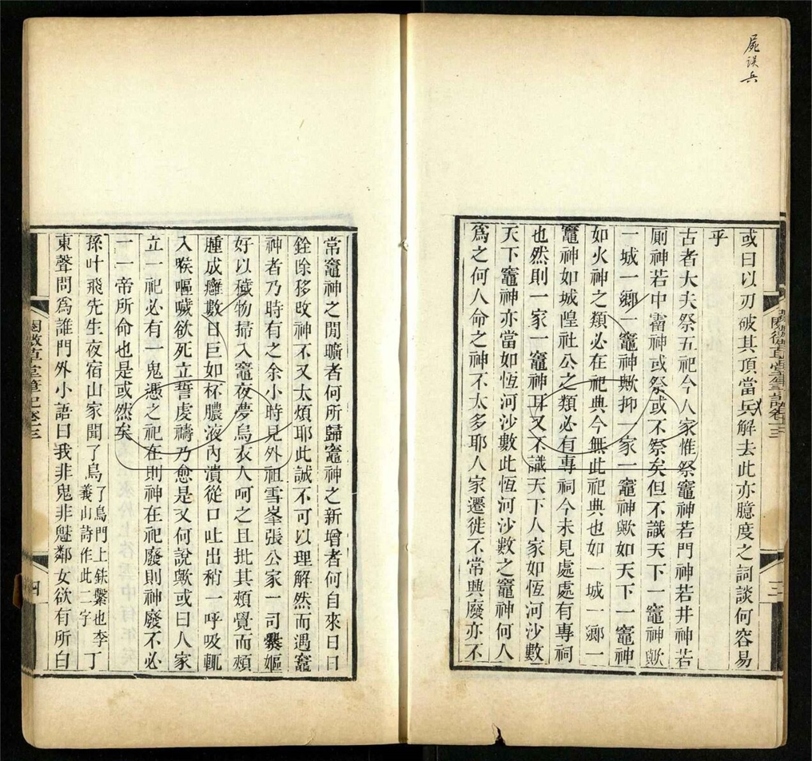 屍誤兵
或曰以刃破其頂當兵解去此亦臆度之詞談何容易
乎
古者大夫祭五祀今人家惟祭竈神若門神若井神若
廁神若中霤神或祭或不祭矣但不識天下一竈神歟
一城一鄉一竈神歟抑一家一竈神歟如天下一竈神
如火神之類必在祀典今無此祀典也如一城一鄉一
竈神如城隍社公之類必有專祠今未見處處有專祠
也然則一家一竈神耳又不識天下人家如恆河沙數
天下竈神亦當如恆河沙數此恆河沙數之竈神何人
爲之何人命之神不太多耶人家遷徙不常興廢亦不
三
常竈神之閒曠者何所歸竈神之新增者何自來日日
銓除移改神不又太煩耶此誠不可以理解然而遇竈
神者乃時有之余小時見外祖雪峯張公家一司爨嫗
好以穢物掃入竈夜夢烏衣人呵之且批其頰覺而頰
腫成癰數日巨如杯膿液內潰從口吐出稍一呼吸輒
入喉嘔噦欲死立誓虔禱乃愈是又何說歟或曰人家
立一祀必有一鬼憑之祀在則神在祀廢則神廢不必
一一帝所命也是或然矣
孫叶飛先生夜宿山家聞了鳥了鳥門上鉄繫也李義山詩作此二字丁
東聲問爲誰門外小語曰我非鬼非魅鄰女欲有所白
閱微草堂筆記卷十三
四